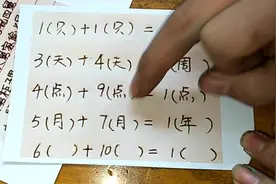 1(只)+1(只)=
3(天)+4(天) (周)
4(点)+9(点 = 1(点)
5(月)+7(月)=1(年)
6( )+10( )=1( )